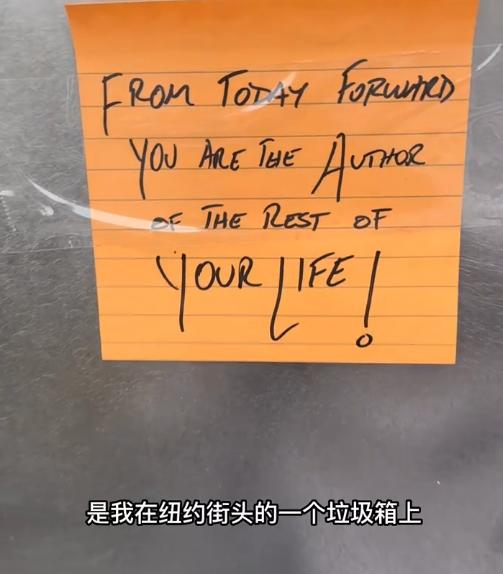 FROM TODAY FORWARD
YOU ARE THE AUTHOR
OF THE REST OF
YOUR LIFE!
是我在纽约街头的一个垃圾箱上